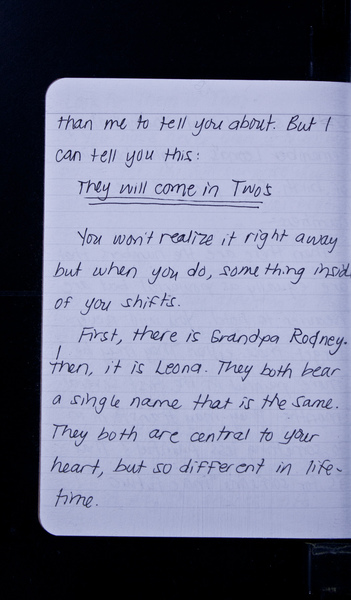 than me to tell you about. But I
can tell you this:
They will come in Twos
You won't realize it right away
but when you do, something insid
of you shifts.
First, there is Grandpa Rodney.
then, it is Leona. They both bear
a single name that is the same.
They both are central to your
heart, but so different in life-
time.